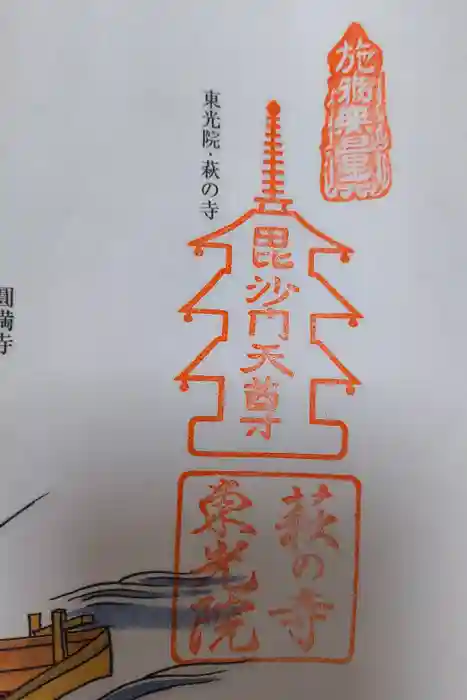 施福無量
東光院・萩の寺
毘沙門天尊
萩の寺
東光院
圓満寺